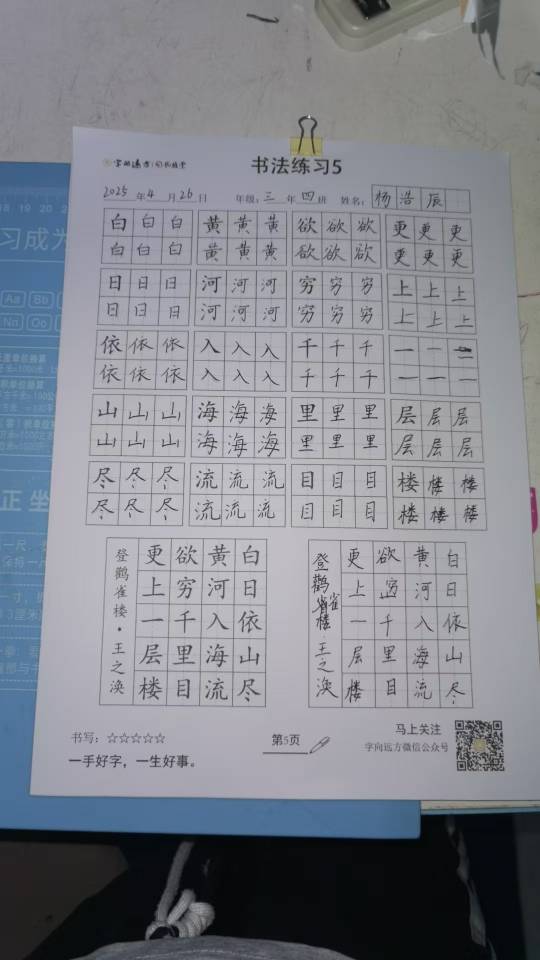 字向远方
书法练习5
2025 年 4 月 26 日 年级:三 年 四 班 姓名:杨浩辰
白 白 白 黄 黄 黄 欲 欲 欲 更 更 更
白 白 白 黄 黄 黄 欲 欲 欲 更 更 更
日 日 日 河 河 河 穷 穷 穷 上 上 上
日 日 日 河 河 河 穷 穷 穷 上 上 上
依 依 依 入 入 入 千 千 千 一 一
依 依 依 入 入 入 千 千 千 一 一 一
山 山 山 海 海 海 里 里 里 层 层 层
山 山 山 海 海 海 里 里 里 层 层 层
尽 尽 尽 流 流 流 目 目 目 楼 楼 楼
尽 尽 尽 流 流 流 目 目 目 楼 楼 楼
白日依山尽
黄河入海流
欲穷千里目
更上一层楼
登鹳雀楼·王之涣
白日依山尽
黄河入海流
欲穷千里目
更上一层楼
登鹳雀楼·王之涣
书写:☆☆☆☆☆
一手好字,一生好事。
第5页
马上关注
字向远方微信公众号
18 19 20
习成为
Aa Bb
Nn Oo
正坐